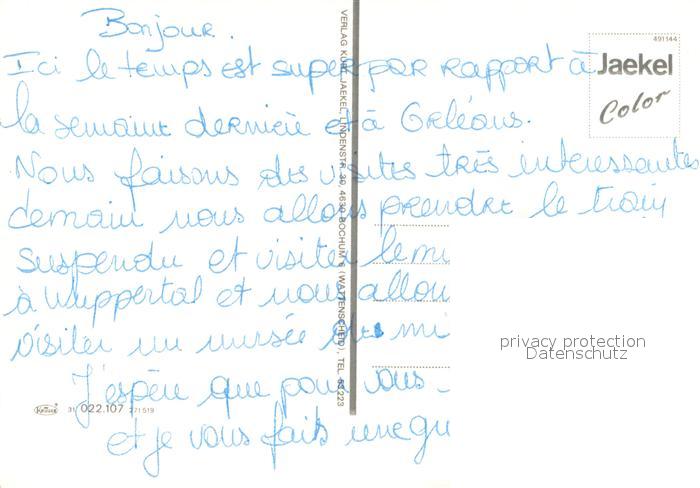 Bonjour.
Ici le temps est super par rapport à
la semaine dernière et à Orléans.
Nous faisons des visites très interessantes
demain nous allons prendre le train
suspendu et visiter le mu
à Wuppertal et nous allon
visiter un musée des mi
J'espère que pour vous
et je vous fais une gu
VERLAG KURT JAEKEL, LINDENSTR. 30, 4630 BOCHUM 6 (WATTENSCHEID), TEL. 83223
491144
Jaekel
Color
privacy protection
Datenschutz
Krüger
31 022.107 271519